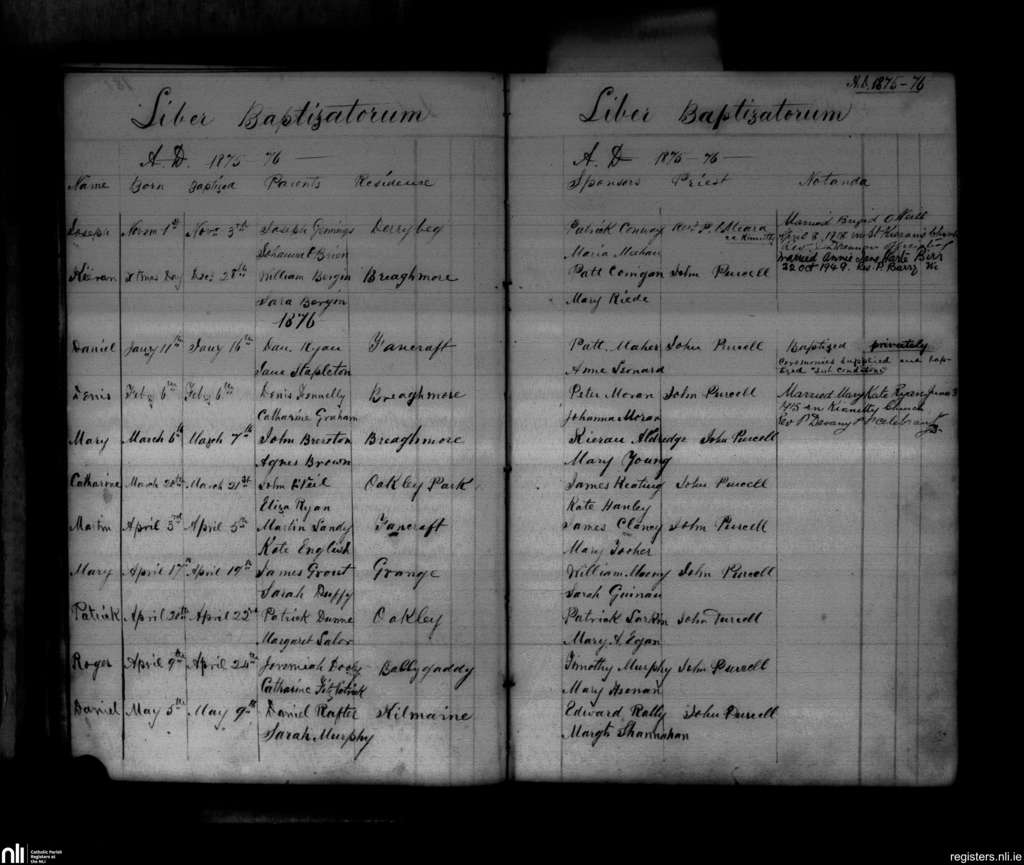 A.D. 1875-76
Liber Baptizatorum
A.D. 1875 76
Name Born Baptized Parents Residense
Joseph Novem 1st Nov. 3rd Joseph Jennings Derrybeg
Johanna Brien
Kieran Xtmas Day Dec. 28th William Bergin Breaghmore
Sara Bergin
1876
Daniel Jany 11th Jany 16th Dan. Ryan Fancroft
Jane Stapleton
Denis Feby 6th Feby 6th Denis Donnelly Breaghmore
Catharine Graham
Mary March 6th March 7th John Brereton Breaghmore
Agnes Brown
Catharine March 20th March 21st John Oakley Park
Eliza Ryan
Martin April 3rd April 5th Martin Landy Fancroft
Kate English
Mary April 17th April 19th James Grout Grange
Sarah Duffy
Patrick April 20th April 22nd Patrick Dunne Oakley
Margaret Lalor
Roger April 9th April 24th Jeremiah Dooly Ballygaddy
Catharine Fitzpatrick
Daniel May 5th May 9th Daniel Rafter Kilmaine
Sarah Murphy
Liber Baptizatorum
A.D 1875-76
Sponsors Priest Notanda
Patrick Conway Revd P. Meara Married Brigid O'Neill
cc Kinnitty April 8, 1918 in St Kieran's
Maria Meehan Rev.
Married Annie Jane Harte Birr
Patt Corrigan John Purcell 22 Oct 1949. Rev P. Barry
Mary Riede
Patt Maher John Purcell Baptized privately
Anne Leonard Ceremonies supplied and bap-
tized "sub conditione"
Peter Moran John Purcell Married Mary Kate Ryan June 3
Johanna Moran 1915 in Kinnitty Church
Rev P Devany P.P. celebrant
Kieran Aldredge John Purcell
Mary Young
James Keating John Purcell
Kate Hanley
James Clancy John Purcell
Mary Tooher
William Moony John Purcell
Sarah Guinan
Patrick Larkin John Purcell
Mary A. Egan
Timothy Murphy John Purcell
Mary Heenan
Edward Rally John Purcell
Margt Shannahan
nli Catholic Parish
Registers at
the NLI
registers.nli.ie